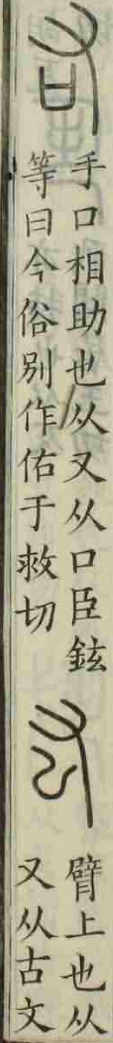 右
手口相助也从又从口臣鉉
等曰今俗別作佑于救切
厷
臂上也从
又从古文